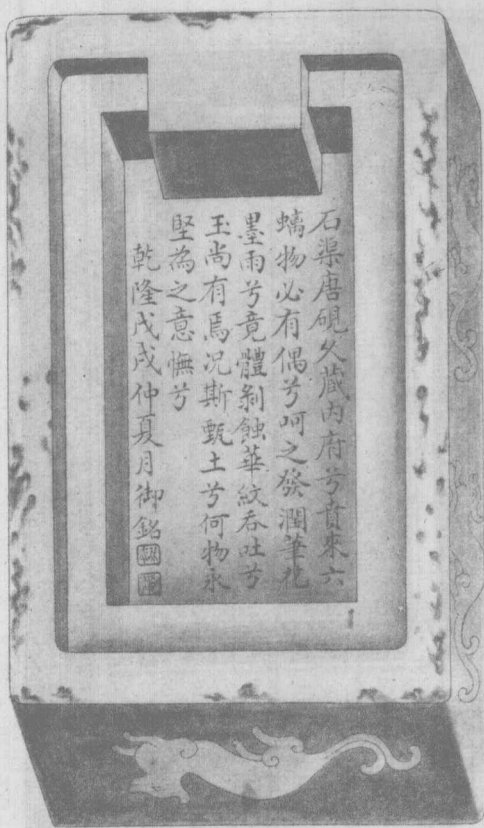 石渠唐硯久藏内府兮賁來六
螭物必有偶兮呵之發潤筆花
墨雨兮竟體剝蝕華紋吞吐兮
玉尚有焉况斯甄土兮何物永
堅為之意憮兮
乾隆戊戌仲夏月御銘